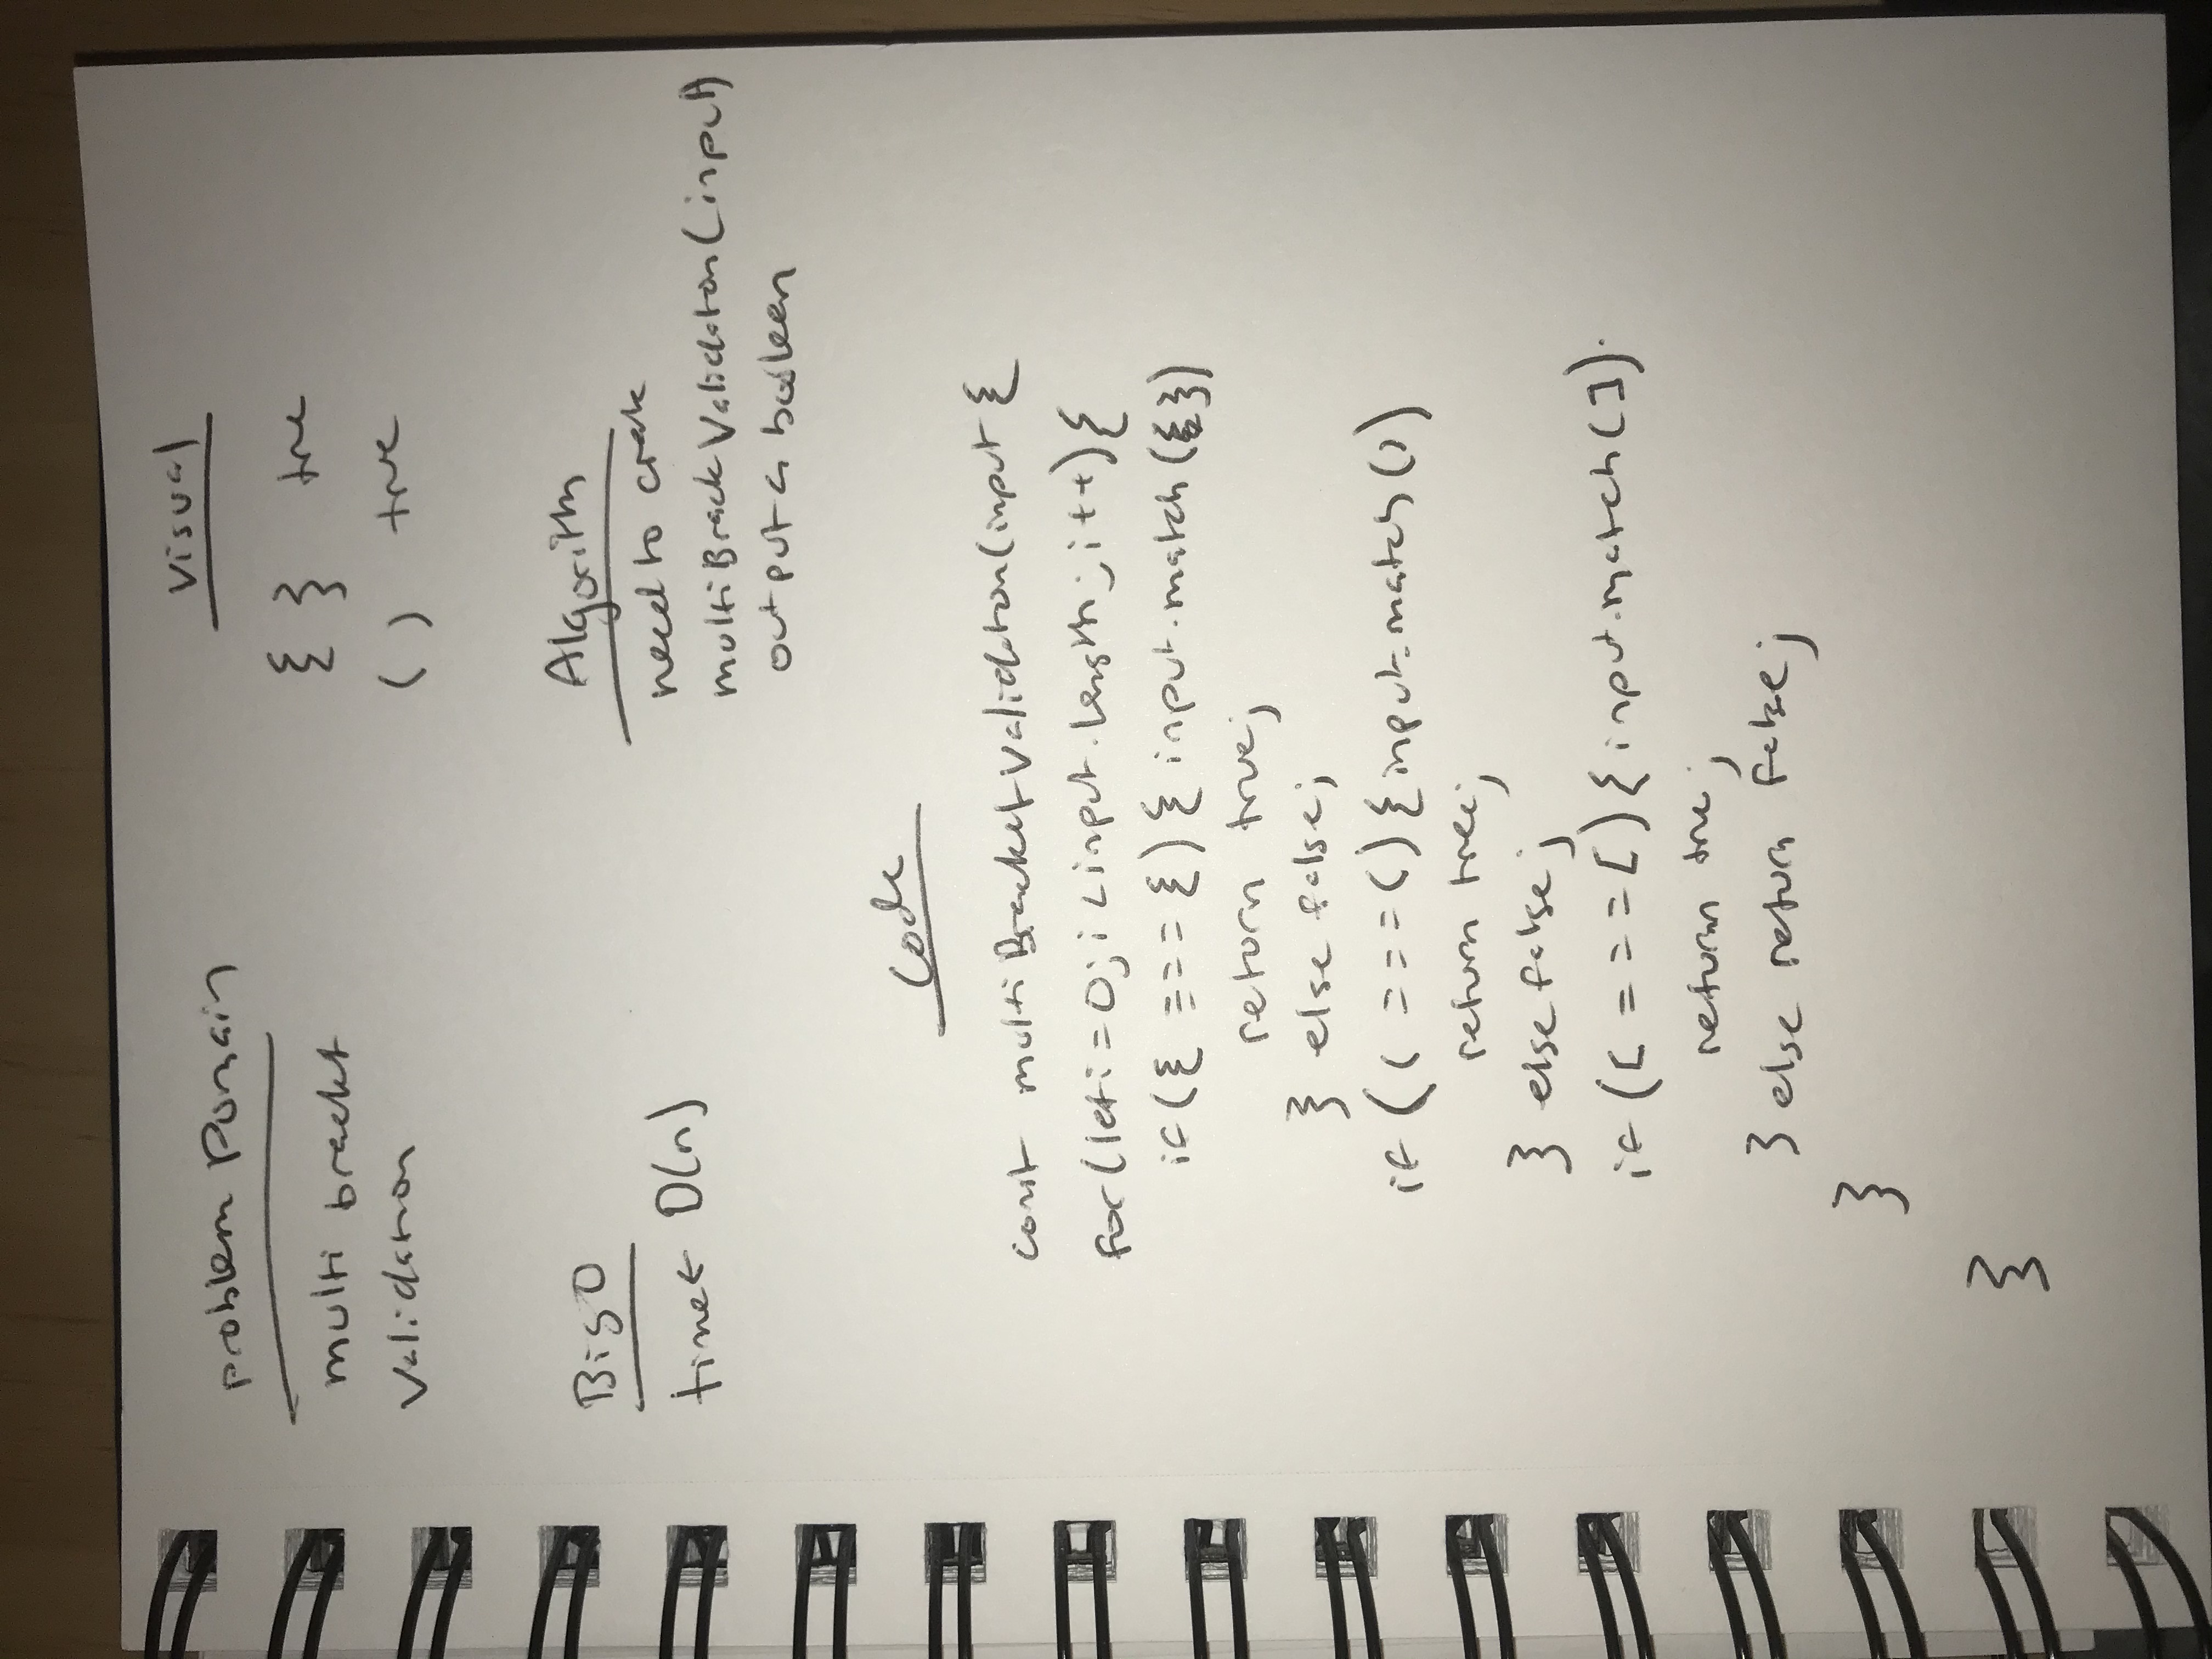 Problem Domain
multi brackt
Validation
Visual
{ } true
( ) true
Big O
time ← O(n)
Algorithm
need to create
multiBrackValidaton(input)
output a boolean
Code
const multiBracketValidaton(input {
for(let i = 0; i < input.length; i++){
if({ === {) { input.match({})
return true;
} else false;
if(( === () {input.match())
return tree;
} else false;
if([ === [) { input.match(]).
return true;
} else return false;
}
}